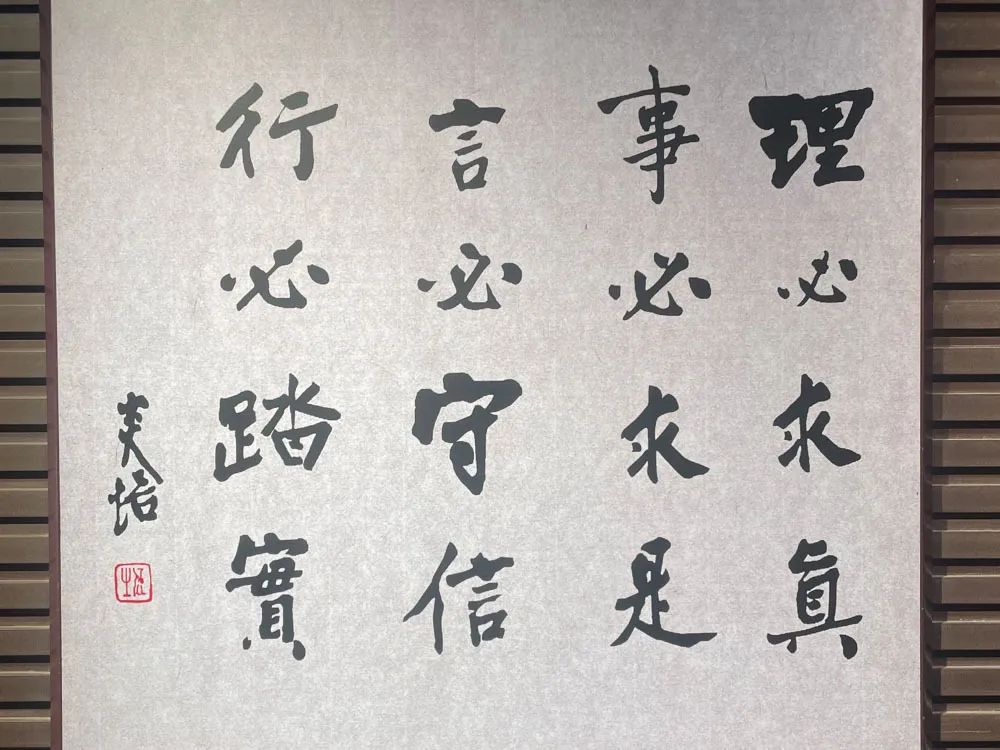 理必求真
事必求是
言必守信
行必踏實
炎培